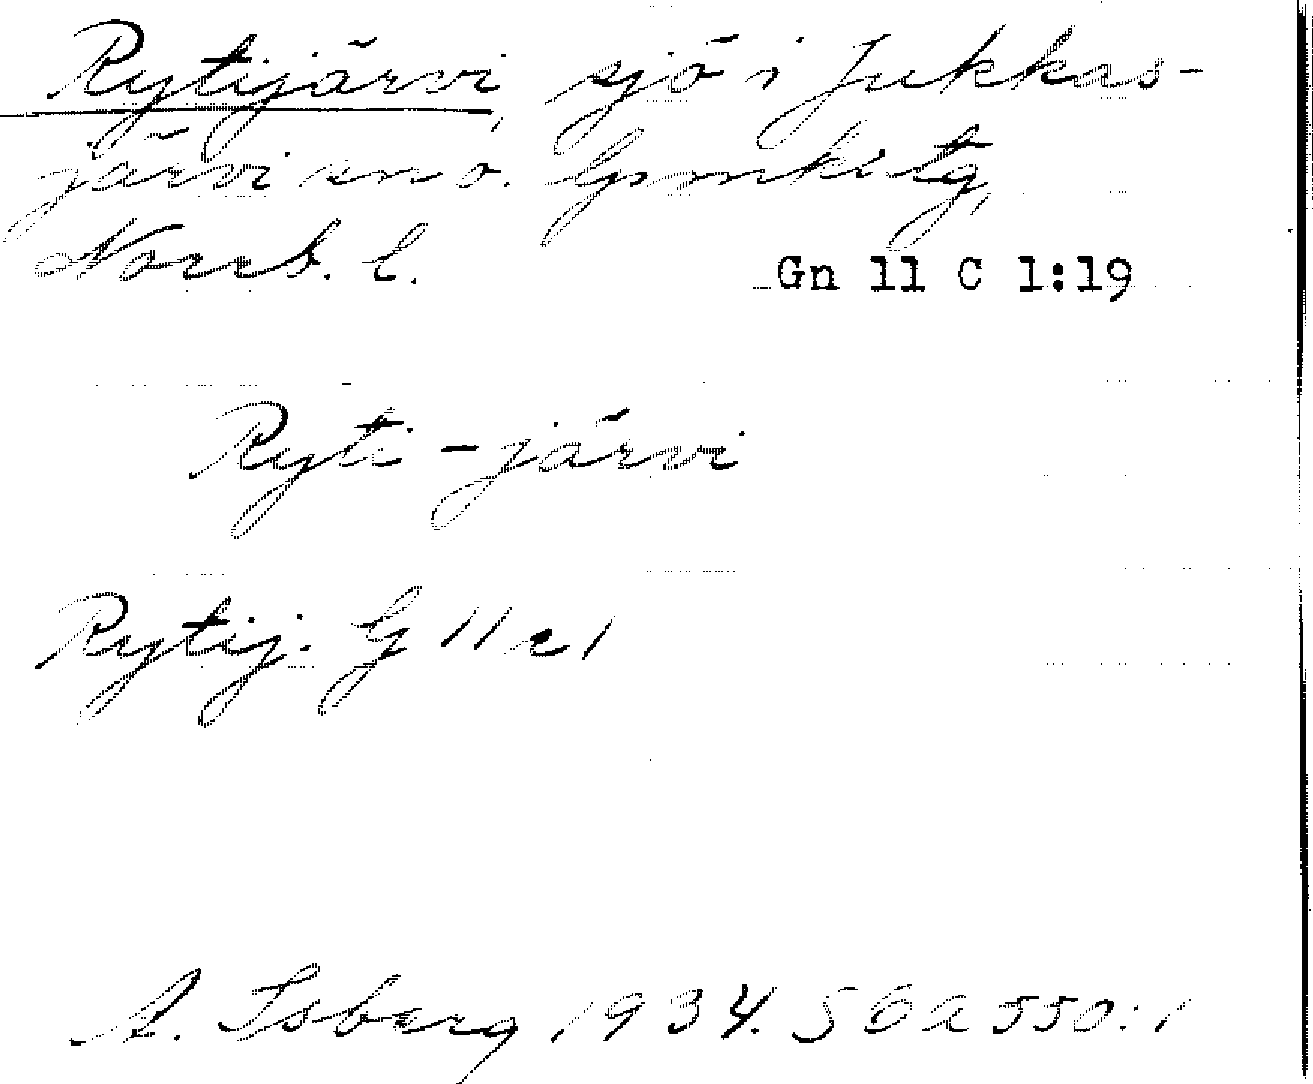 Rytijärvi, sjö i Jukkas-
järvi sn o. Gpmkitg,
Norrb. l.
Gn 11 C 1:19
Ryti - järvi
Rytij. G 11 c 1
A. Isberg 1934. S 62 550:1